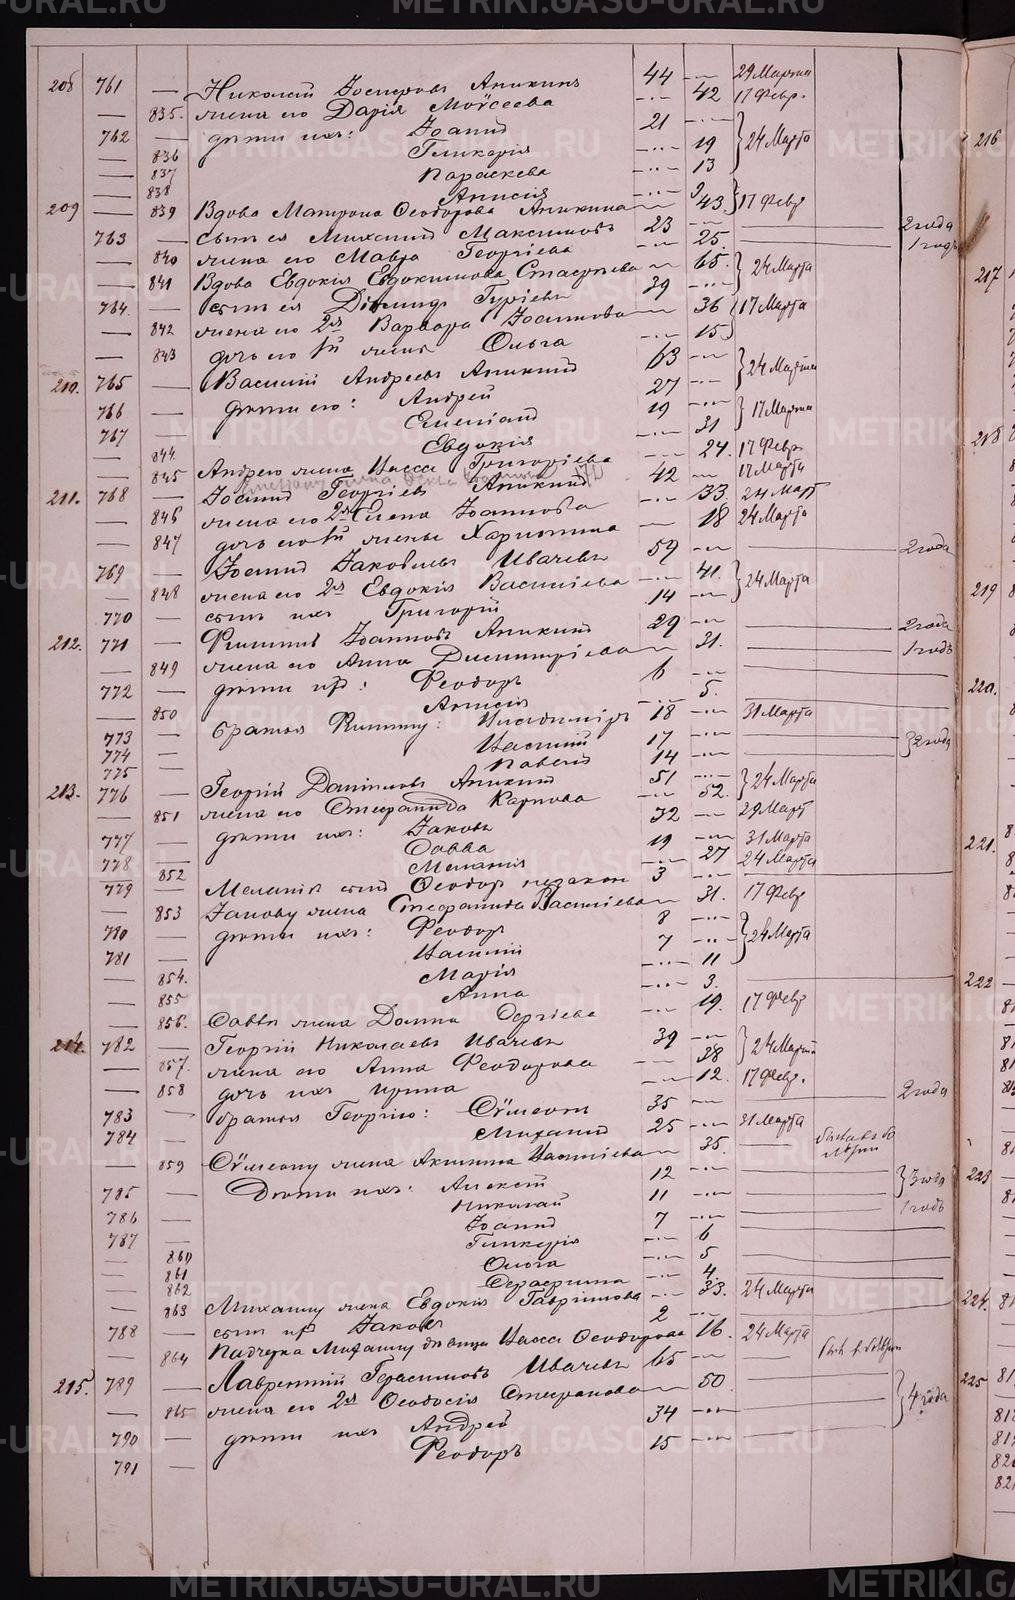 208 761 — Николай Іосифовъ Аникинъ 44 — 29 Марта
— 835. жена его Дарія Моѵсеева — 42 17 Февр.
762 — дѣти ихъ: Іоаннъ 21 — } 24 Марта
— 836 Гликерія — 19
— 837 Параскева — 13
— 838 Анисія — 9 } 17 Февр
209 — 839 Вдова Матрона Ѳеодорова Аникина — 43
763 — сынъ ея Михаилъ Максимовъ 23 — 2 года
— 840 жена его Мавра Георгіева — 25. 1 годъ
— 841 Вдова Евдокія Евдокимова — 65. } 24 Марта
764. — сынъ ея Гуріевъ 39 —
— 842 жена его 2я Варвара — 36 } 17 Марта
— 843 дочь его 1й жены Ольга — 15
210. 765 — Василій Андреевъ Аникинъ 63 — } 24 Марта
766 — дѣти его: Андрей 27 —
767 — Емеліанъ 19 — } 17 Марта
— 844 Евдокія — 31
— 845 Андрею жена Васса Григоріева — 24. 17 Февр
211. 768 — Іоаннъ Георгіевъ Аникинъ 42 — 17 Марта
— 846 жена его 2я Елена Іоаннова — 33. 24 Март
— 847 дочь его 1й жены Харитина — 18 24 Марта
769 — Іоаннъ Іаковлевъ Ивачевъ 59 — 2 года
— 848 жена его 2я Евдокія Василіева — 41. } 24 Марта
770 — сынъ ихъ Григорій 14 —
212. 771 — Филиппъ Іоанновъ Аникинъ 29 — 2 года
— 849 жена его Анна Димитріева — 31. 1 годъ
772 — дѣти их: Ѳеодоръ 6 —
— 850 Анисія — 5.
773 — братья Филиппу: 18 — 31 Марта
774 — Василій 17 — } 2 года
775 — Павелъ 14 —
213. 776 — Георгій Даниловъ Аникинъ 51 — } 24 Марта
— 851 жена его Стефанида Карпова — 52.
777 — дѣти ихъ: Іаковъ 32 — 29 Март
778 — Савва 19 — 31 Марта
— 852 Меланія — 27 24 Марта
779 — Меланіи сынъ Ѳеодоръ незакон 3 —
— 853 Іакову жена Стефанида Василіева — 31. 17 Февр
780 — дѣти ихъ: Ѳеодоръ 8 — } 24 Марта
781 — Василій 7 —
— 854. Марія — 11
— 855 Анна — 3.
— 856. Саввы жена Домна Сергіева — 19. 17 Февр
214. 782 — Георгій Николаевъ Ивачевъ 39 — } 24 Марта
— 857. жена его Анна Ѳеодорова — 38
— 858 дочь ихъ Ирина — 12. 17 Февр.
783 — братья Георгію: Сѵмеонъ 35 — 2 года
784 — Михаилъ 25 — 31 Марта
— 859 Сѵмеону жена Акилина Василіева — 35.
785 — Дѣти ихъ: Алексій 12 — } 3 года
786 — Николай 11 — 1 годъ
787 — Іоаннъ 7 —
— 860 Гликерія — 6
— 861 Ольга — 5
— 862 Серафима — 4
— 863 Михаилу жена Евдокія Гавріилова — 33. 24 Марта
788 — сынъ их Іаковъ 2 —
— 864 Падчерка Михаилу дѣвица Васса Ѳеодорова — 16. 24 Марта
215. 789 — Лаврентій Герасимовъ Ивачевъ 65 —
— 865 жена его 2я Ѳеодосія Стефанова — 50 } 4 года
790 — дѣти ихъ Андрей 34 —
791 — Ѳеодоръ 15 —
216
217
218
219
220.
221.
222
223
224.
225